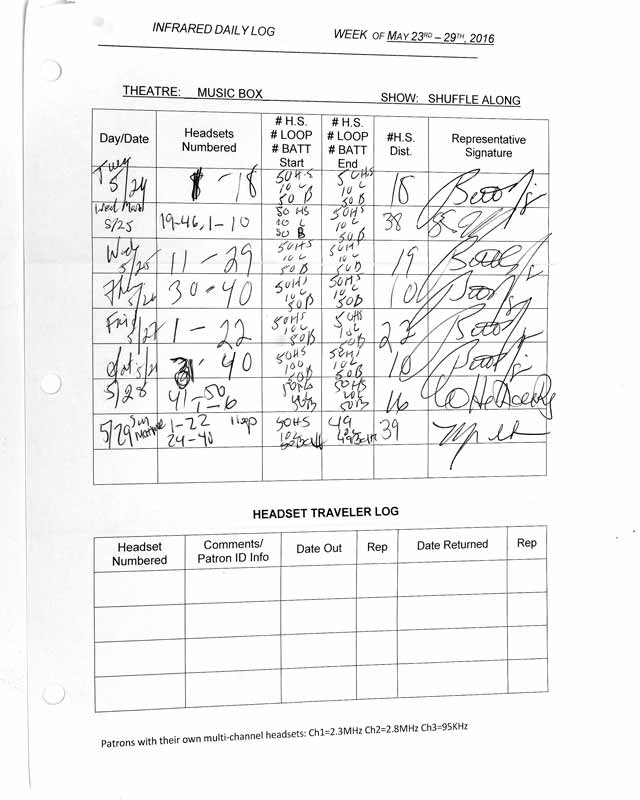 INFRARED DAILY LOG WEEK OF MAY 23RD – 29TH, 2016
THEATRE: MUSIC BOX SHOW: SHUFFLE ALONG
Day/Date Headsets Numbered # H.S. # LOOP # BATT Start # H.S. # LOOP # BATT End #H.S. Dist. Representative Signature
Tues 5/24 1 - 18 50HS 10L 50B 50HS 10L 50B 18
Wed Mat 5/25 19-46, 1-10 50 HS 10 L 50 B 50HS 10L 50B 38
Wed 5/25 11 - 29 50HS 10L 50B 50HS 10L 50B 19
30 - 40 50HS 10L 50B 50HS 10L 50B 10
Fri 5/27 1 - 22 50HS 10L 50B 50HS 10L 50B 22
Sat 40 50HS 50B 50HS 10L 50B 10
5/28 41-50 1-6 50HS 50B 50HS 50B 16
5/29 Sun Matinee 1-22 24-40 50HS 10L 50Batt 49 49Batt 39
HEADSET TRAVELER LOG
Headset Numbered Comments/ Patron ID Info Date Out Rep Date Returned Rep
Patrons with their own multi-channel headsets: Ch1=2.3MHz Ch2=2.8MHz Ch3=95KHz